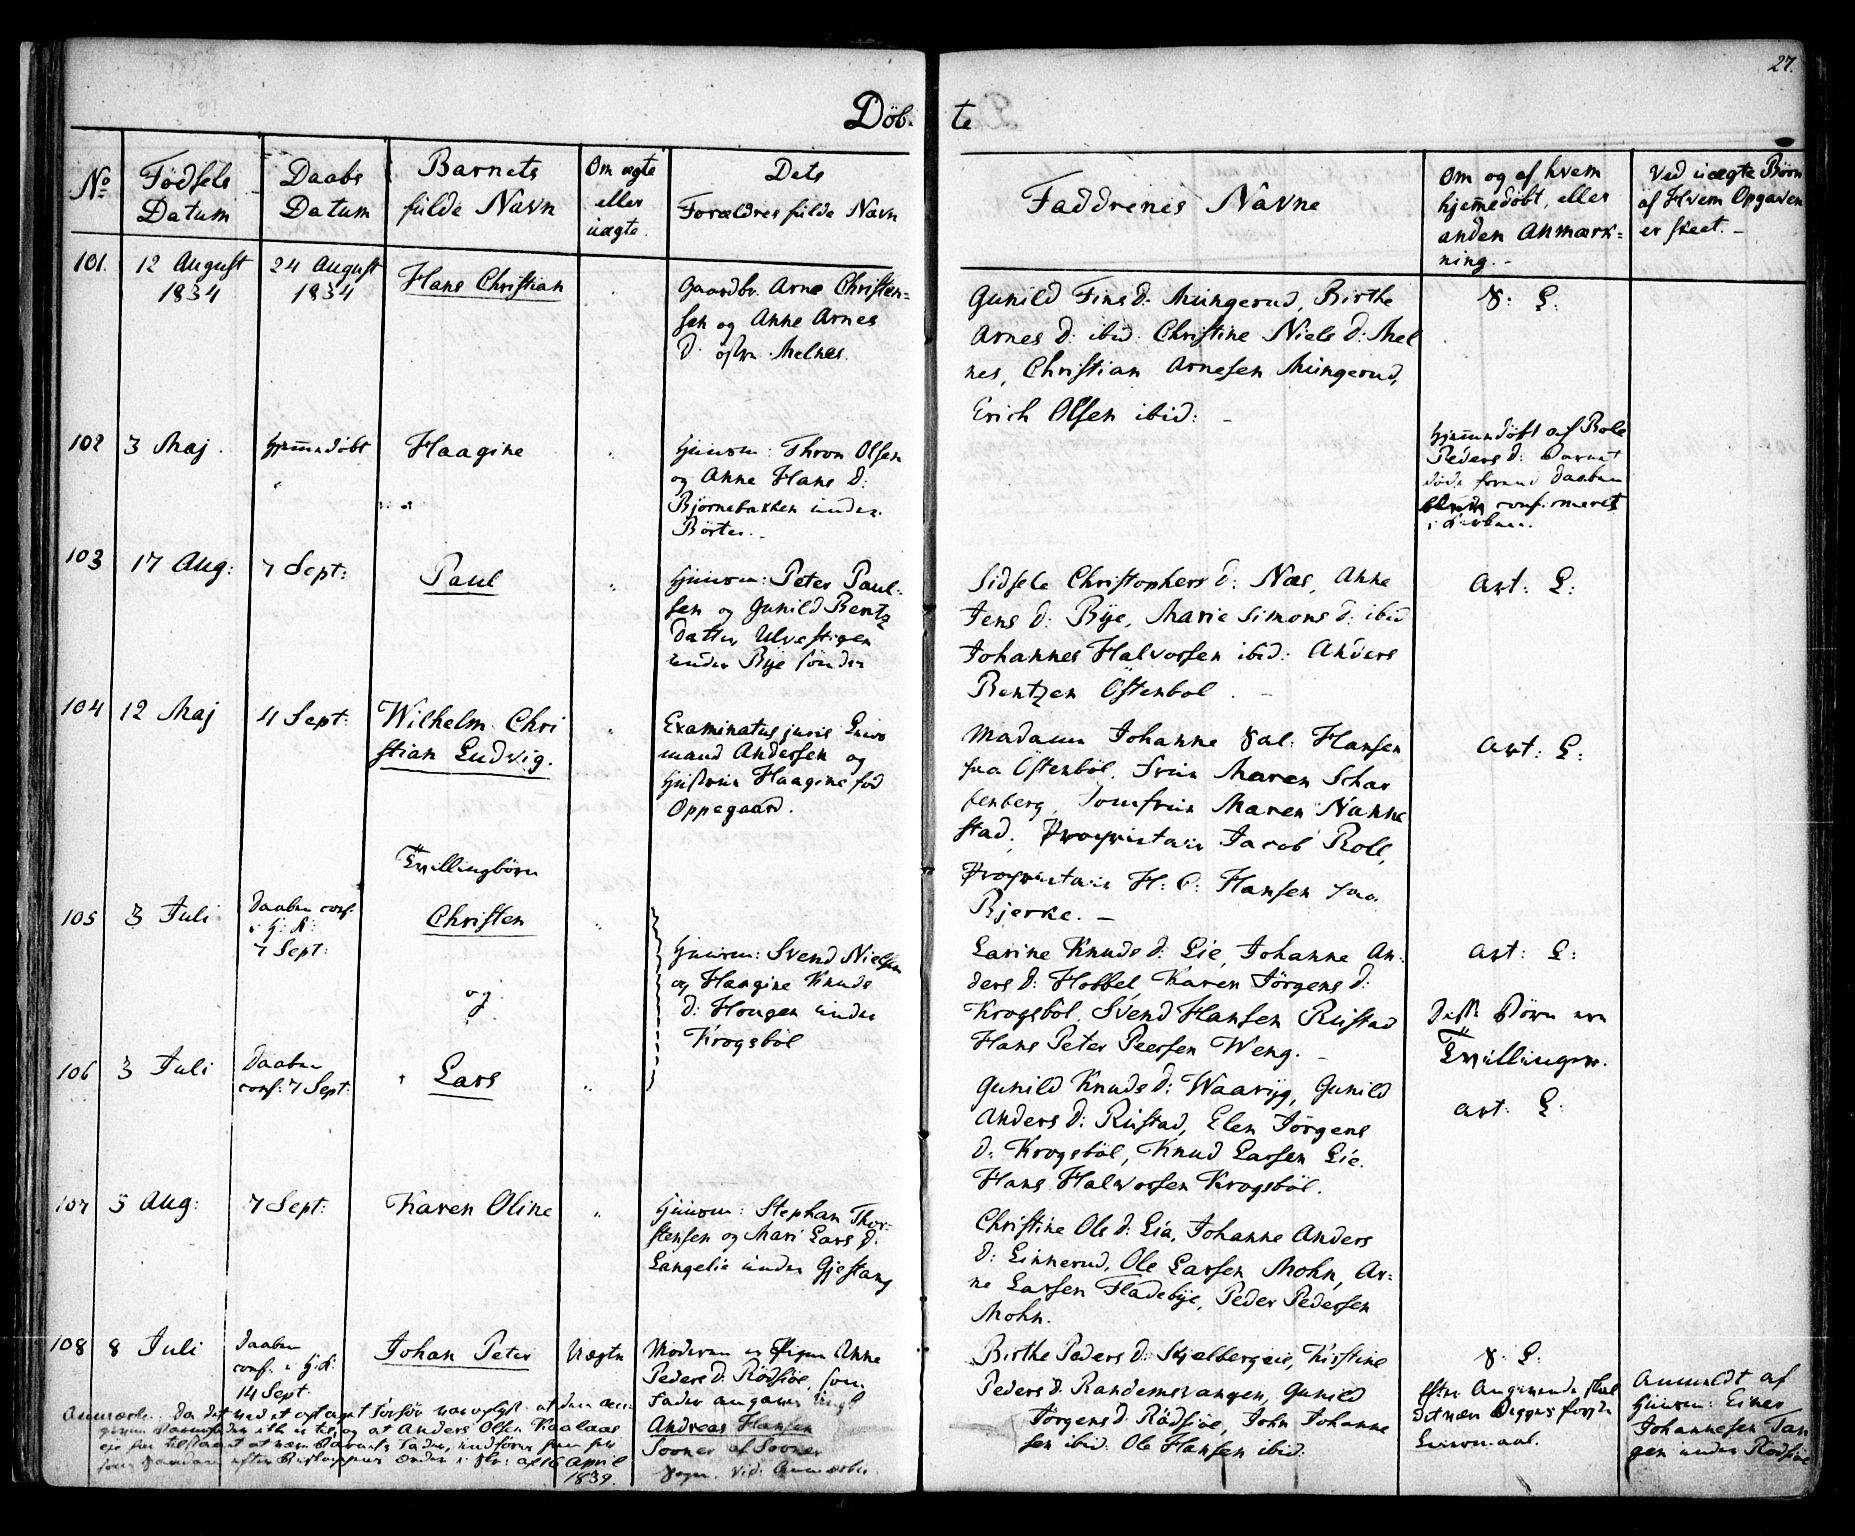 27.
Döb-te
No
Födsels Datum
Daabs Datum
Barnets fulde Navn
Om ægte eller uægte.
Dets Forældres fulde Navn
Faddrenes Navne
Om og af hvem hjemedöbt, eller anden Anmærkning.-
Ved uægte Börn af Hvem Opgaven er skeet.-
101.
12 August 1834
24 August 1834
Hans Christian
"
Gaardbr. Arne Christen=
sen og Anne Arnes
D. östre Melnes.
Gunild Finsd: Mungerud, Birthe
Arnes D: ibid: Christine Niels D: Mel
nes, Christian Arnesen Mungerud,
Erich Olsen ibid: -
V: L:
102
3 Maj.
hjemmedöbt
Haagine
"
Huusm: Thron Olsen
og Anne Hans D:
Björnebakken under
Börter.-
Hjemmedöbt af Bole
Peders D: Barnet
döde forend Daaben
blev confirmeret
i Kirken.
103
17 Aug:
7 Sept:
Paul
"
Huusm: Peter Paul-
sen og Gunild Bentz
Datter Ulvestigen
under Bye söndre
Sidsele Christophers D: Næs, Anne
Jens D: Bye, Marie Simons D: ibid
Johannes Halvorsen ibid: Anders
Bentzen Östenbøl. -
Art: L:
104
12 Maj
4 Sept:
Wilhelm Chri
stian Ludvig.
"
Examinatus juris
Andersen og
Hustrue Haagine fød
Oppegaard.
Madame Johanne Hansen
fra Östenböl, Frue Maren Schar
fenberg, Jomfrue Maren Nanne
stad, Proprietair Jacob Roll,
Proprietair H: C: Hansen paa
Bjerke. -
Art: L:
Tvillingbörn
105
3 Juli
Daaben conf.
i H: K:
7 Sept:
Christen
"
og
Huusm: Svend Nielsen
og Haagine Knuds
D: Hougen under
Krogsböl
Larine Knuds D: Lie, Johanne An-
ders D: Hobbel, Karen Jörgens D:
Krogsböl, Svend Hansen Rustad
Hans Peter Peersen Weng. -
Art: L:
Disse Börn ere
Tvillinger.
106
3 Juli
Daaben
conf: 7 Sept:
Lars
"
Gunild Knuds D: Waaryg, Gunild
Anders D: Rustad, Elen Jörgens
D: Krogsböl, Knud Larsen Lie.
Hans Halvorsen Krogsböl.
Art: L:
107
5 Aug:
7 Sept:
Karen Oline
"
Huusm: Stephan Thor-
stensen og Mari Lars D:
Langelie under Gjestang
Christine Ols D: Lia, Johanne Anders
D: Linnerud, Ole Larsen Mohn, Ar=
ne Larsen Fladebye, Peder Pedersen
Mohn.
108
8 Juli
Daaben
conf. i H: K:
14 Sept:
Johan Peter
Uægte
Moderen er Pigen Anne
Peders D: Rödsöe, som
Fader angaves
Andreas Hansen
Sooner af Sooner
Sogn. Vid: Anmærkn.
Birthe Peders D: Skjelbergeie, Kirstine
Peders D: Randemsvangen, Gunild
Jörgens D: Rödsöe, John Johanne
sen ibid: Ole Hansen ibid.
V: L:
Efter Angivende skal
det være Begges förste
Leiermaal.
Anmeldt af
Huusm: Einer
Johannesen Tan
gen under Rödsöe
Anmærkn. Da det ved et optaget Forhör oplyst at den an
Barnefader ikke er til, og at Anders Olsen Kaalaas
har tilstaaet at være Barnets Fader, indföres her
som saadan efter Biskoppens Ordre i Skr: af 16 April
1839.